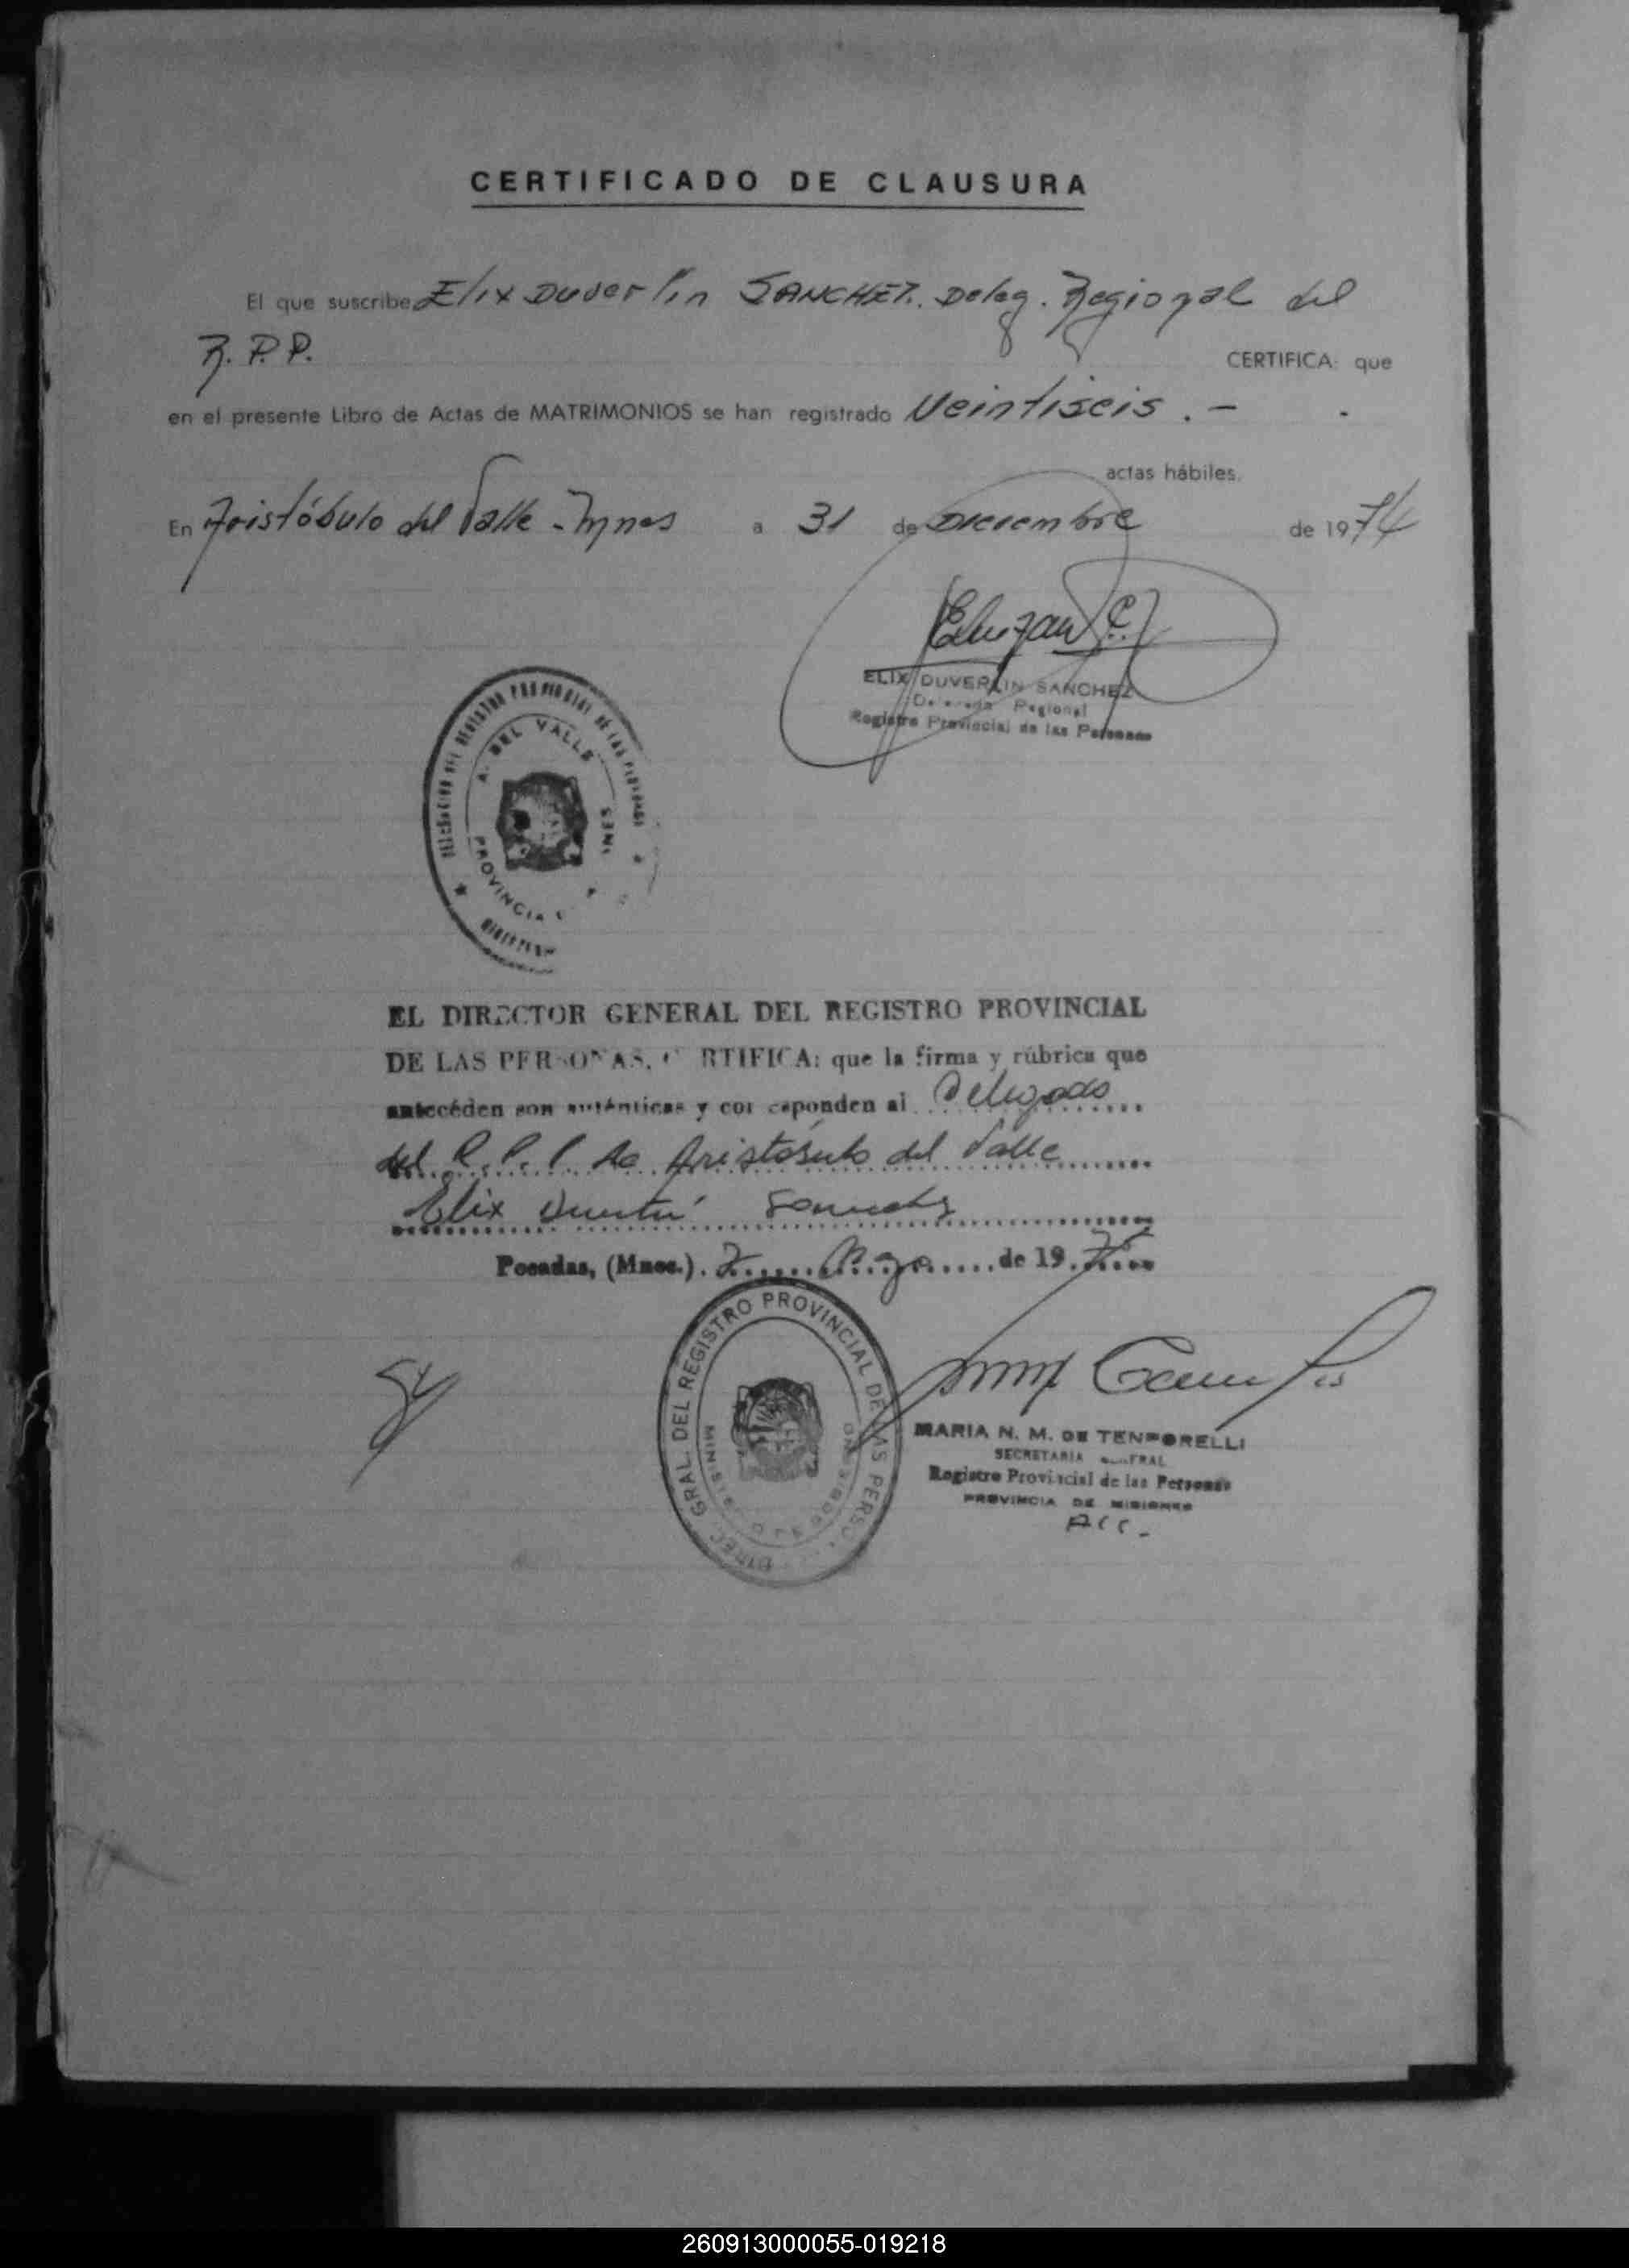 CERTIFICADO DE CLAUSURA
El que suscribe Elix Duverlin SANCHEZ. Deleg. Regional del
R.P.P. CERTIFICA: que
en el presente Libro de Actas de MATRIMONIOS se han registrado Veintiseis . -
actas hábiles.
En Aristóbulo del Valle - Mnes a 31 de Diciembre de 1974
ELIX DUVERLIN SANCHEZ
Delegado Regional
Registro Provincial de las Personas
DELEGACION DEL REGISTRO PROVINCIAL DE LAS PERSONAS
A. DEL VALLE
PROVINCIA
EL DIRECTOR GENERAL DEL REGISTRO PROVINCIAL
DE LAS PERSONAS, CERTIFICA: que la firma y rúbrica que
antecéden son auténticas y corresponden al Delegado
del R. P. P. de Aristóbulo del Valle
Elix Duverlin Sanchez
Posadas, (Mnes.). 2 de 19
DIREC. GRAL. DEL REGISTRO PROVINCIAL DE LAS PERS.
MARIA N. M. DE TEMPORELLI
SECRETARIA GENERAL
Registro Provincial de las Personas
PROVINCIA DE MISIONES
260913000055-019218